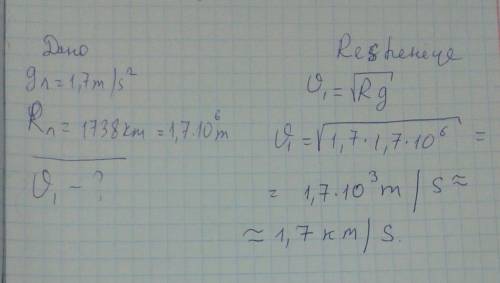 Дано
gл = 1,7 m/s²
Rл = 1738 km = 1,7·10⁶ m
υ₁ - ?
Resheneye
υ₁ = √Rg
υ₁ = √1,7·1,7·10⁶ =
= 1,7·10³ m/s ≈
≈ 1,7 km/s.